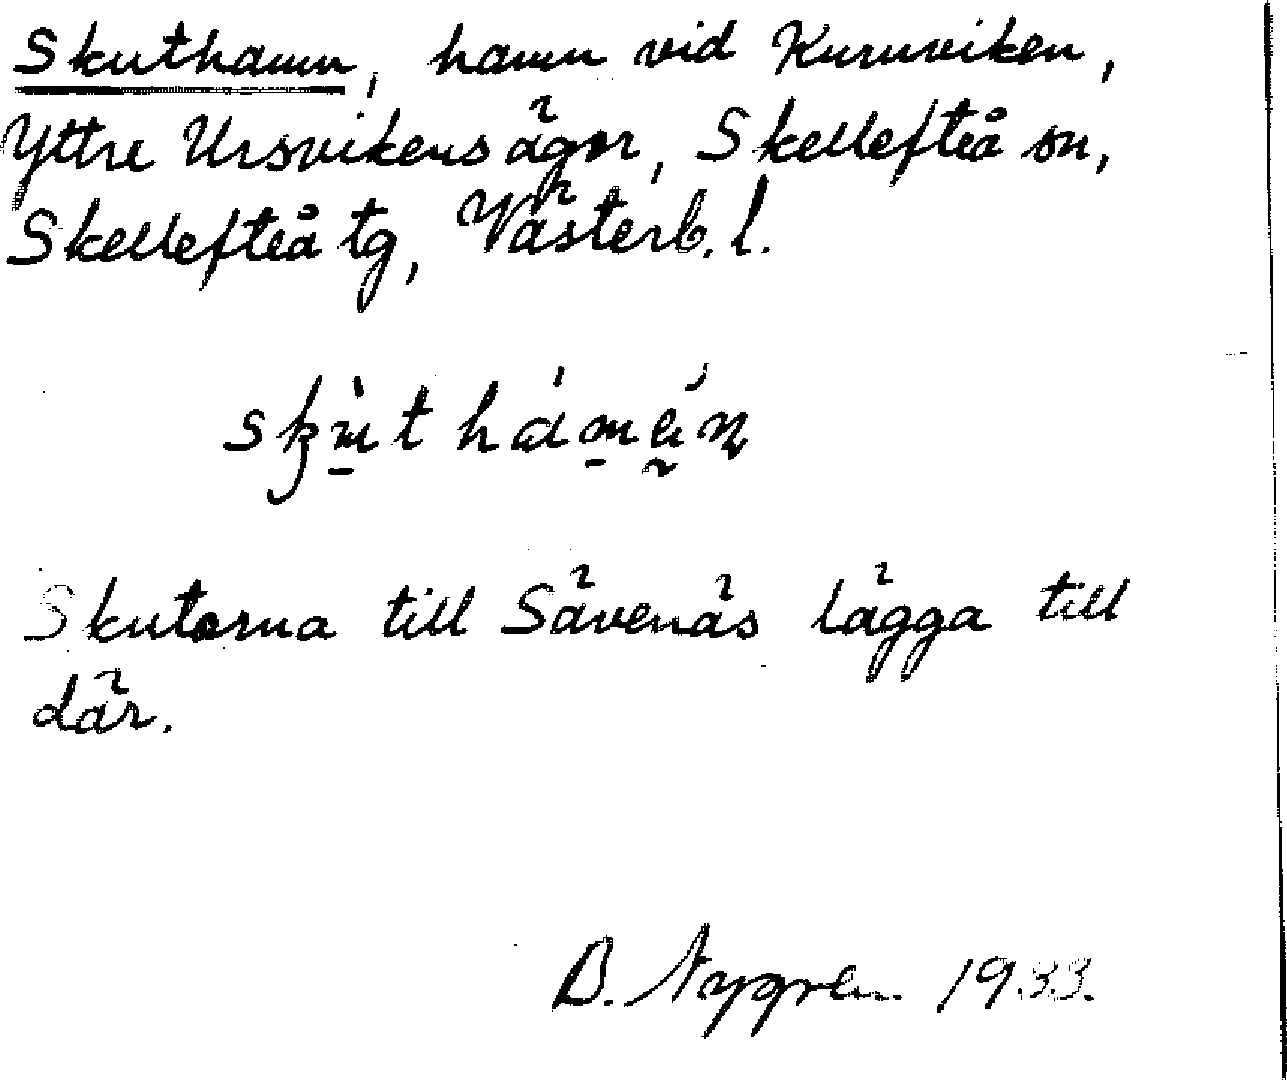 Skuthamn, hamn vid Kurnviken,
Yttre Ursvikens ägor, Skellefteå sn,
Skellefteå tg, Västerb. l.
Skutorna till Sävenäs lägga till
där.
B. Nygren. 1933.